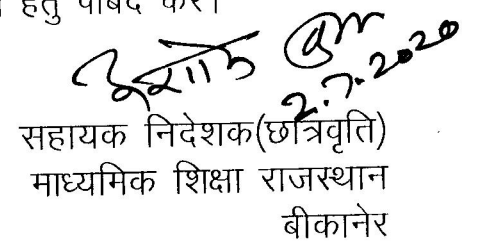 हेतु पाबंद करें।
2.7.2020
सहायक निदेशक(छात्रवृति)
माध्यमिक शिक्षा राजस्थान
बीकानेर